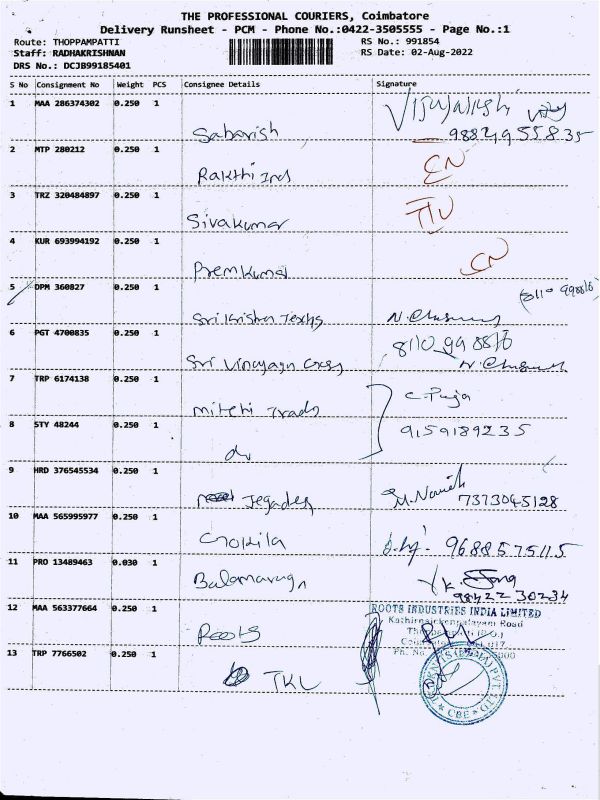 THE PROFESSIONAL COURIERS, Coimbatore
Delivery Runsheet - PCM - Phone No.:0422-3505555 - Page No.:1
Route: THOPPAMPATTI RS No.: 991854
Staff: RADHAKRISHNAN RS Date: 02-Aug-2022
DRS No.: DCJB99185401
S No Consignment No Weight PCS Consignee Details Signature
1 MAA 286374302 0.250 1
Sabarish 9884955835
2 MTP 280212 0.250 1
Rakthi Ind
3 TRZ 320484897 0.250 1
Sivakumar
4 KUR 693994192 0.250 1
Premkumar
5 DPM 360827 0.250 1
Sri Krishna Texts
6 PGT 4700835 0.250 1
Sri Vinayaga
7 TRP 6174138 0.250 1 C. Puja
Mitchi Trads
8 STY 48244 0.250 1 9159189235
do
9 HRD 376545534 0.250 1
Jegades 7373045128
10 MAA 565995977 0.250 1
Gokila 9688575115
11 PRO 13489463 0.030 1
Balamurugan 98422 30234
12 MAA 563377664 0.250 1 ROOTS INDUSTRIES INDIA LIMITED
Kathirnaickenpalayam Road
Roots
13 TRP 7766502 0.250 1 Ph. No.
TKL
CBE